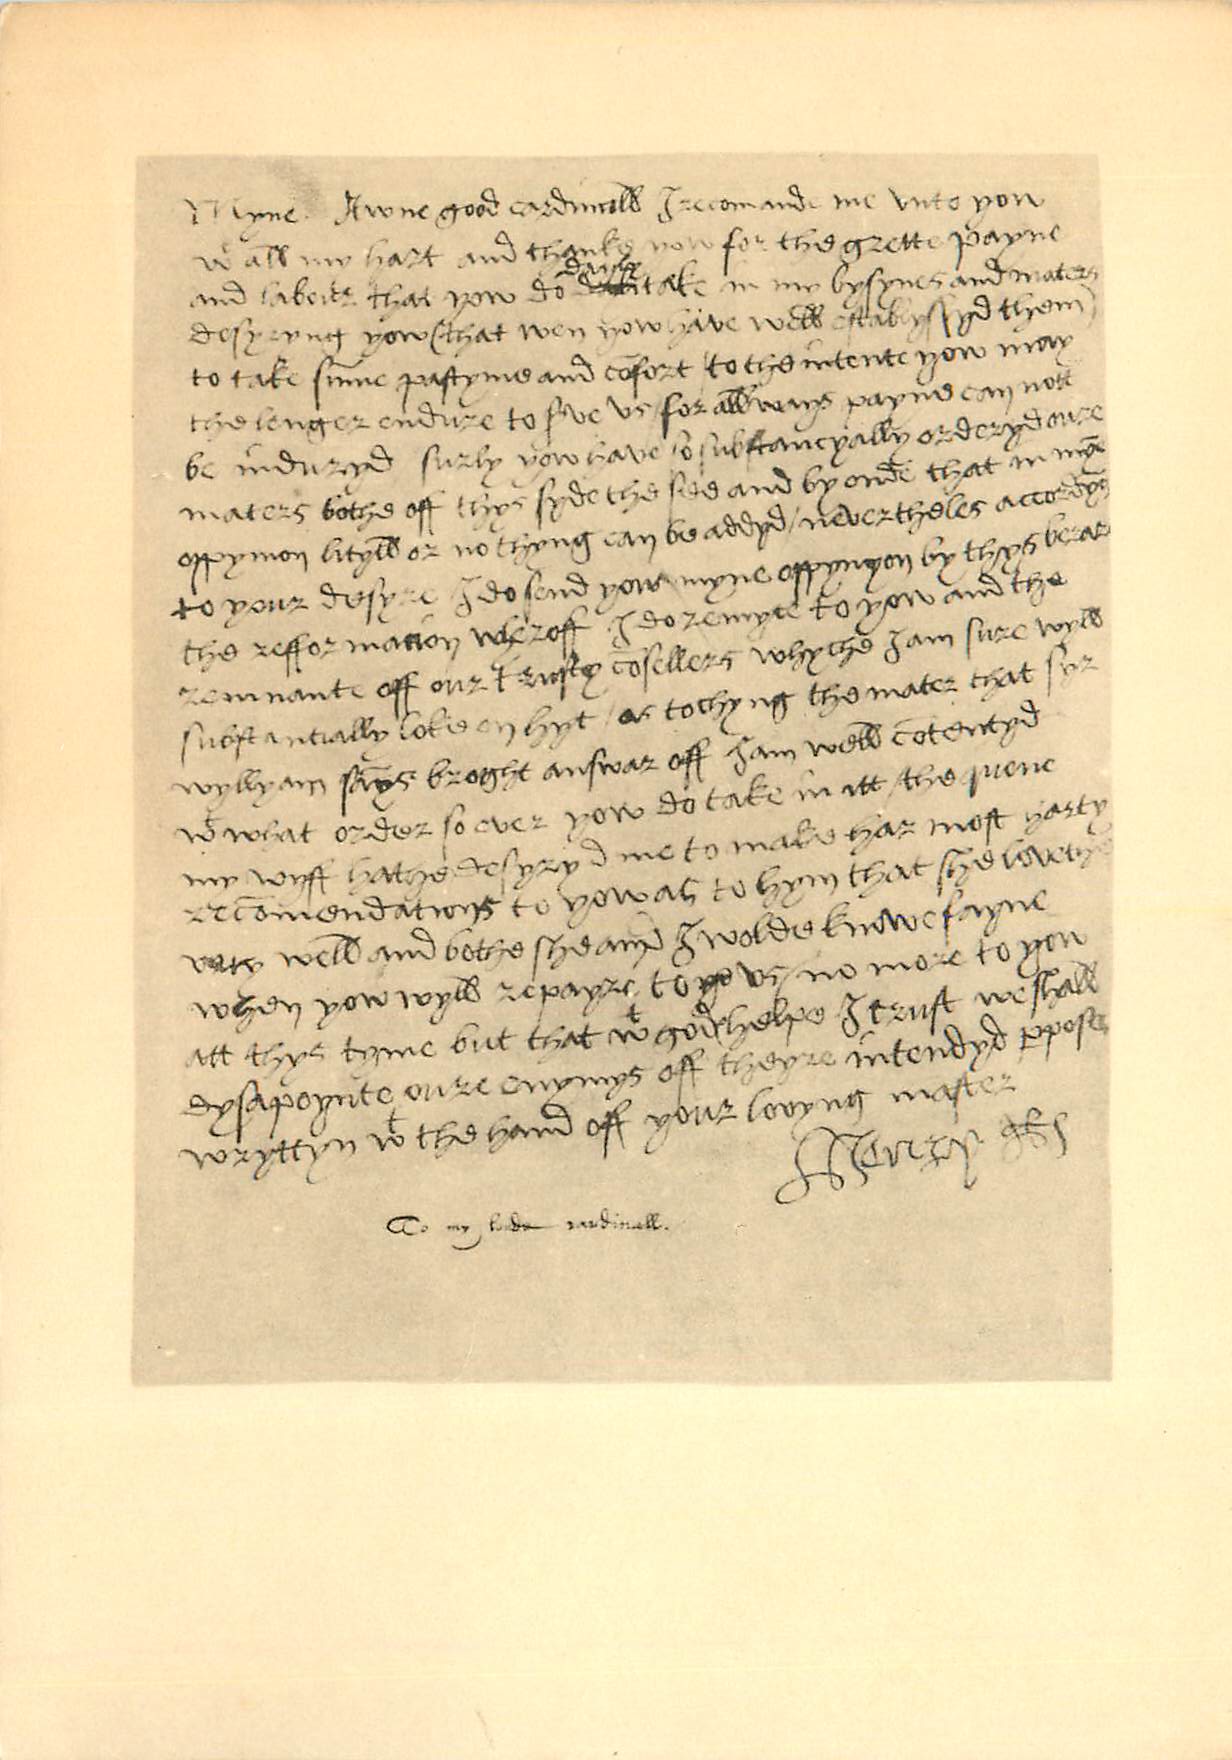 Myne Awne good cardinall I recomande me vnto yow
wt all my hart and thanke yow for the grette payne
and labour that yow do dayly take in my bysynes and maters
desyryng yow (that wen yow have well establyshyd them)
to take sūme pastyme and cōfort / to the intente yow may
the lenger endure to sve vs / for allways payne can nott
be induryd surly yow have so substancyally orderyd oure
maters bothe off thys syde the see and by onde that in myne
oppynion lityll or no thyng can be addyd / nevertheles accordyng
to your desyre I do send yow myne oppynyon by thys berar
the refformacion wheroff I do remytt to yow and the
remnante off our trusty cōsellers whyche I am sure wyll
substantially loke on hyt / as tochyng the mater that syr
wyllyam says broght answar off I am well cōtentyd
wt what order so ever yow do take in itt / the quene
my wyff hathe desyryd me to make har most harty
recōmendations to yow as to hym that she lovethe
very well and bothe she and I wolde knowe fayne
when yow wyll repayre to vs / no more to yow
att thys tyme but that wt gods helpe I trust we shall
dysapoynte oure enymys off theyre intendyd pposes
wryttyn wt the hand off your lovyng master
Henry R
To my lorde cardinall.